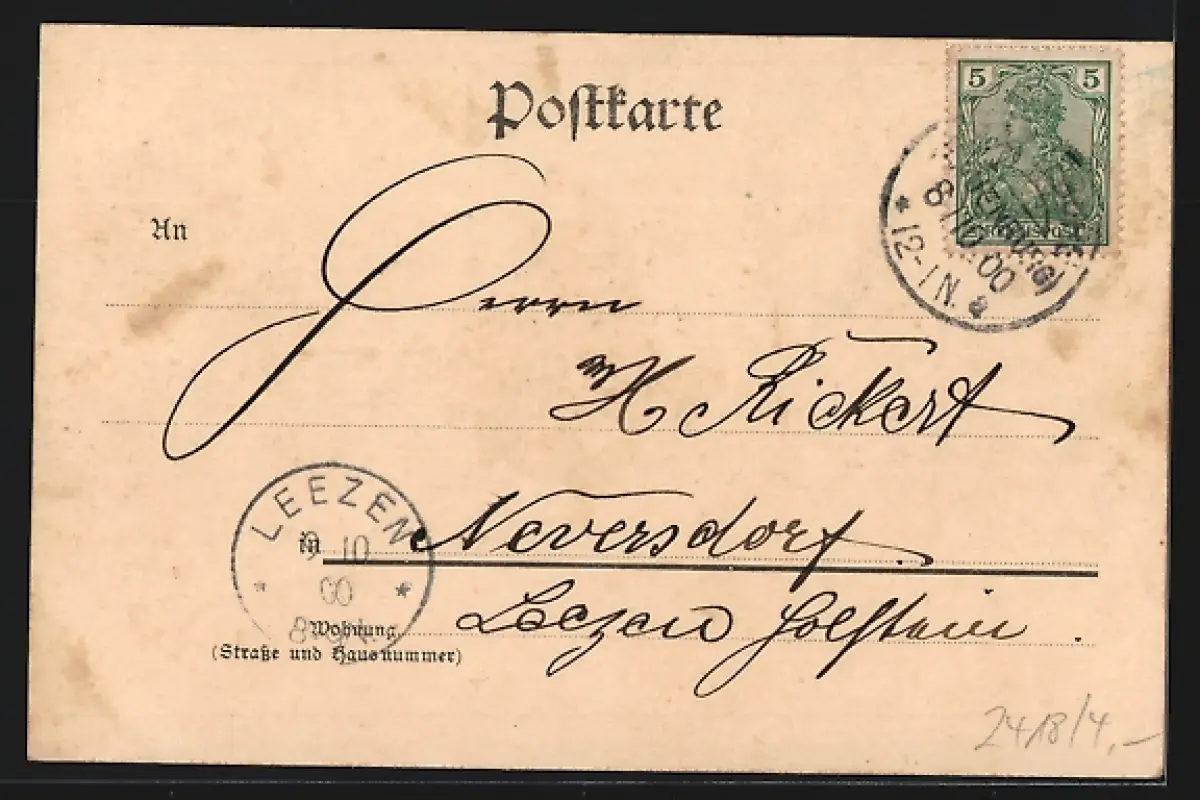 Postkarte
5 5
8/10.00
*12-1N.*
An
Herrn
H Rickert
LEEZEN
9 10
00
in Neversdorf.
Leezen Holstein.
Wohnung
(Straße und Hausnummer)
2418/4,-